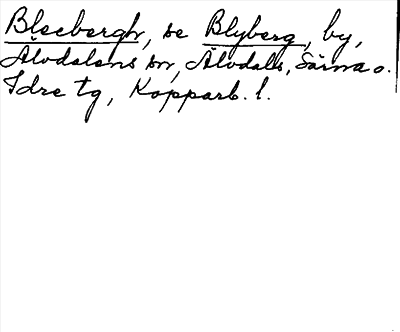 Bleebergh, se Blyberg, by,
Älvdalens sn, Älvdals, Särna o.
Idre tg, Kopparb. l.